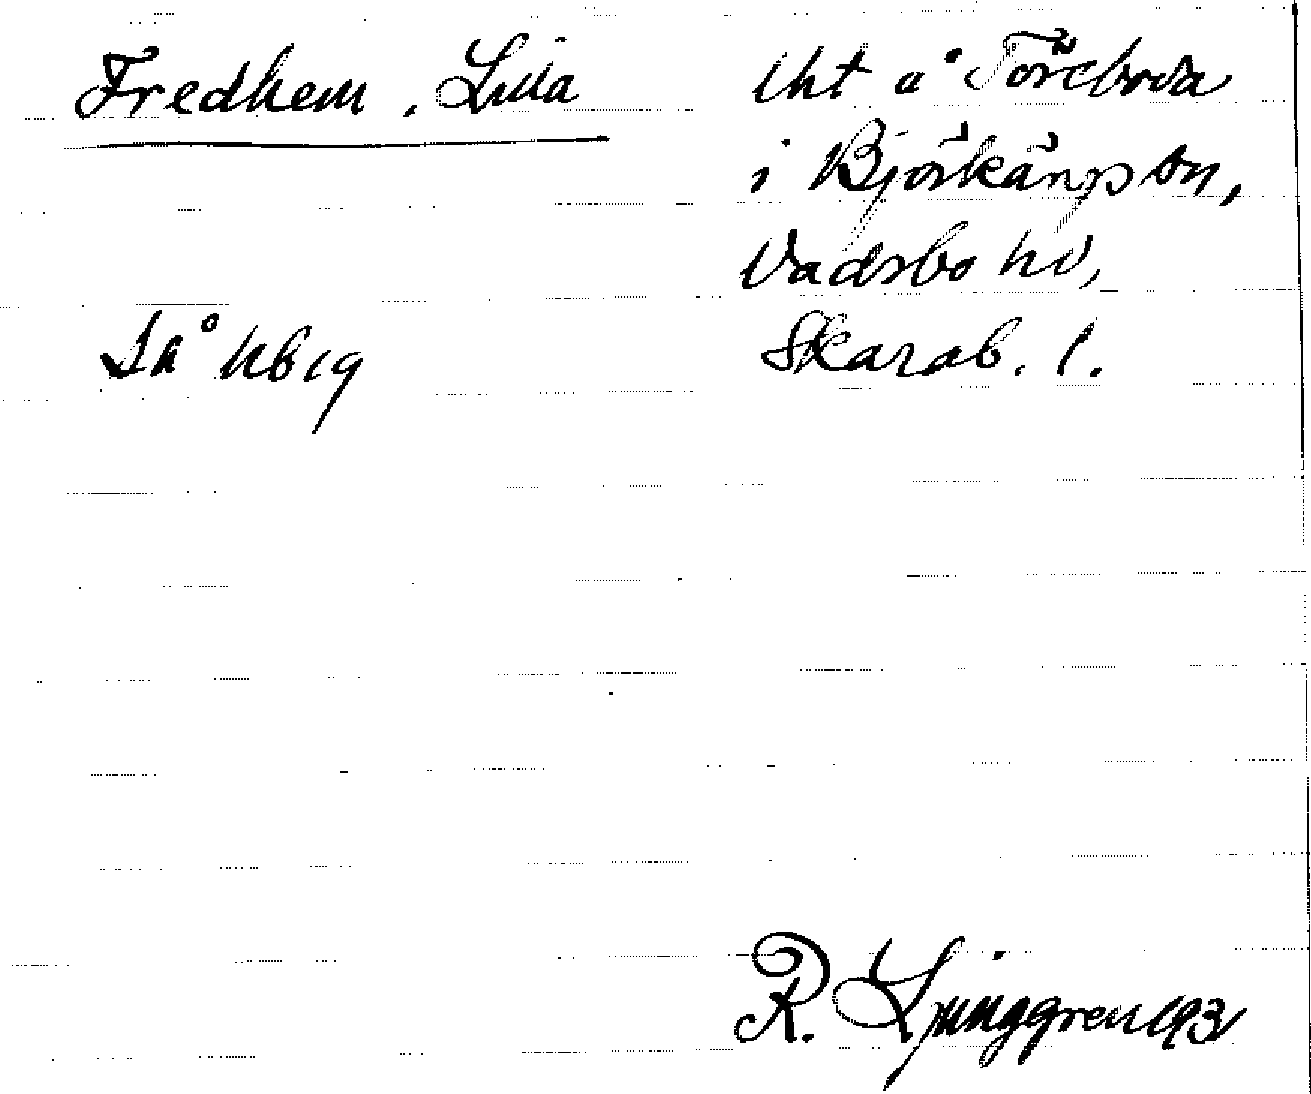 Fredhem, Lilla
lht å Töreboda
i Björkängs sn,
Vadsbo hd,
Skarab. l.
Så ubiq
R. Ljunggren 193